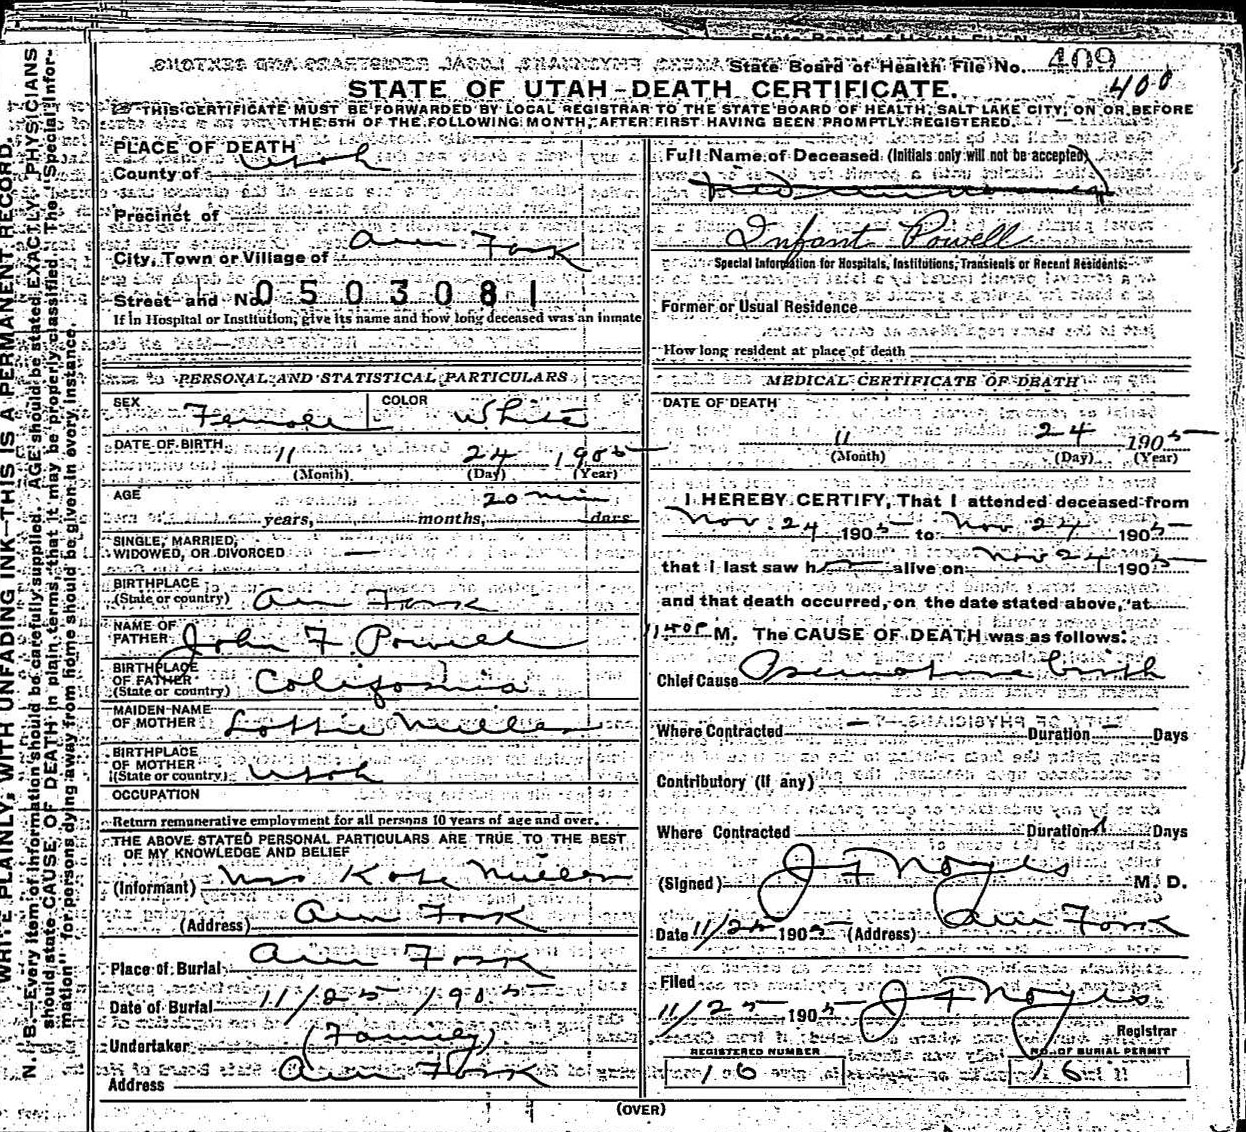 State Board of Health File No. 409
400
STATE OF UTAH-DEATH CERTIFICATE.
THIS CERTIFICATE MUST BE FORWARDED BY LOCAL REGISTRAR TO THE STATE BOARD OF HEALTH, SALT LAKE CITY, ON OR BEFORE
THE 5TH OF THE FOLLOWING MONTH, AFTER FIRST HAVING BEEN PROMPTLY REGISTERED.
WRITE PLAINLY, WITH UNFADING INK—THIS IS A PERMANENT RECORD.
N. B.—Every item of information should be carefully supplied. AGE should be stated EXACTLY. PHYSICIANS
should state CAUSE OF DEATH in plain terms, that it may be properly classified. The "Special Infor-
mation" for persons dying away from home should be given in every instance.
PLACE OF DEATH
County of Utah
Precinct of
City, Town or Village of Am Fork
Street and No. 0503081
If in Hospital or Institution, give its name and how long deceased was an inmate
PERSONAL AND STATISTICAL PARTICULARS
SEX Female COLOR White
DATE OF BIRTH 11 24 1905
(Month) (Day) (Year)
AGE 20 min
years, months, days
SINGLE, MARRIED,
WIDOWED, OR DIVORCED —
BIRTHPLACE
(State or country) Am Fork
NAME OF
FATHER John F Powell
BIRTHPLACE
OF FATHER
(State or country) California
MAIDEN NAME
OF MOTHER Lottie Miller
BIRTHPLACE
OF MOTHER
(State or country) Utah
OCCUPATION
Return remunerative employment for all persons 10 years of age and over.
THE ABOVE STATED PERSONAL PARTICULARS ARE TRUE TO THE BEST
OF MY KNOWLEDGE AND BELIEF
(Informant) Mrs Kate Miller
(Address) Am Fork
Place of Burial Am Fork
Date of Burial 11/25 1905
Undertaker (Family)
Address Am Fork
Full Name of Deceased (Initials only will not be accepted)
Infant Powell
Special Information for Hospitals, Institutions, Transients or Recent Residents:
Former or Usual Residence
How long resident at place of death
MEDICAL CERTIFICATE OF DEATH
DATE OF DEATH
11 24 1905
(Month) (Day) (Year)
I HEREBY CERTIFY, That I attended deceased from
Nov. 24 1905 to Nov 24 1905
that I last saw h alive on Nov 24 1905
and that death occurred, on the date stated above, at
M. The CAUSE OF DEATH was as follows:
Chief Cause Premature birth
Where Contracted — Duration — Days
Contributory (if any)
Where Contracted Duration Days
(Signed) J F Noyes M. D.
Date 11/25 1905 (Address) Am Fork
Filed
11/25 1905 J F Noyes
Registrar
REGISTERED NUMBER
16
NO. OF BURIAL PERMIT
16
(OVER)